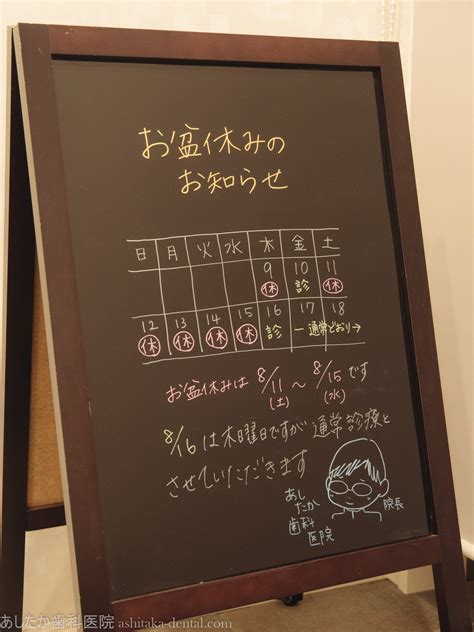 お盆休みの
お知らせ
日 月 火 水 木 金 土
9 10 11
休 診 休
12 13 14 15 16 17 18
休 休 休 休 診 ー通常どおり→
お盆休みは 8/11 ～ 8/15 です
(土) (水)
8/16 は木曜日ですが通常診療と
させていただきます
あし
たか
歯科
医院
院長
あしたか歯科医院 ashitaka-dental.com